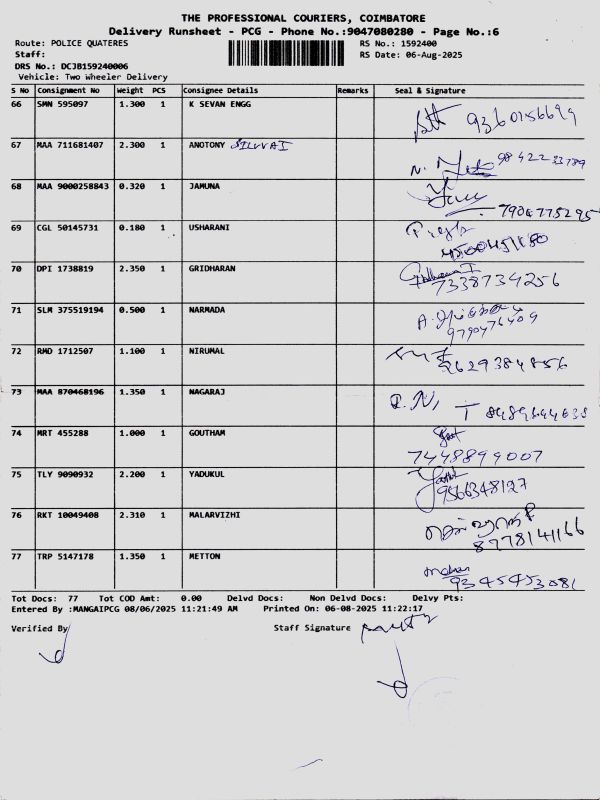 THE PROFESSIONAL COURIERS, COIMBATORE
Delivery Runsheet - PCG - Phone No.:9047080280 - Page No.:6
Route: POLICE QUATERES RS No.: 1592400
Staff: RS Date: 06-Aug-2025
DRS No.: DCJB159240006
Vehicle: Two Wheeler Delivery
S No Consignment No Weight PCS Consignee Details Remarks Seal & Signature
66 SMN 595097 1.300 1 K SEVAN ENGG 9360156699
67 MAA 711681407 2.300 1 ANOTONY SILUVAI 9842233789
68 MAA 9000258843 0.320 1 JAMUNA 7904775295
69 CGL 50145731 0.180 1 USHARANI
70 DPI 1738819 2.350 1 GRIDHARAN 7338734256
71 SLM 375519194 0.500 1 NARMADA 9790476409
72 RMD 1712507 1.100 1 NIRUMAL 96293 84856
73 MAA 870468196 1.350 1 NAGARAJ
74 MRT 455288 1.000 1 GOUTHAM 7448899007
75 TLY 9090932 2.200 1 YADUKUL 9566348127
76 RKT 10049408 2.310 1 MALARVIZHI 8778141166
77 TRP 5147178 1.350 1 METTON 9345453081
Tot Docs: 77 Tot COD Amt: 0.00 Delvd Docs: Non Delvd Docs: Delvy Pts:
Entered By :MANGAIPCG 08/06/2025 11:21:49 AM Printed On: 06-08-2025 11:22:17
Verified By Staff Signature